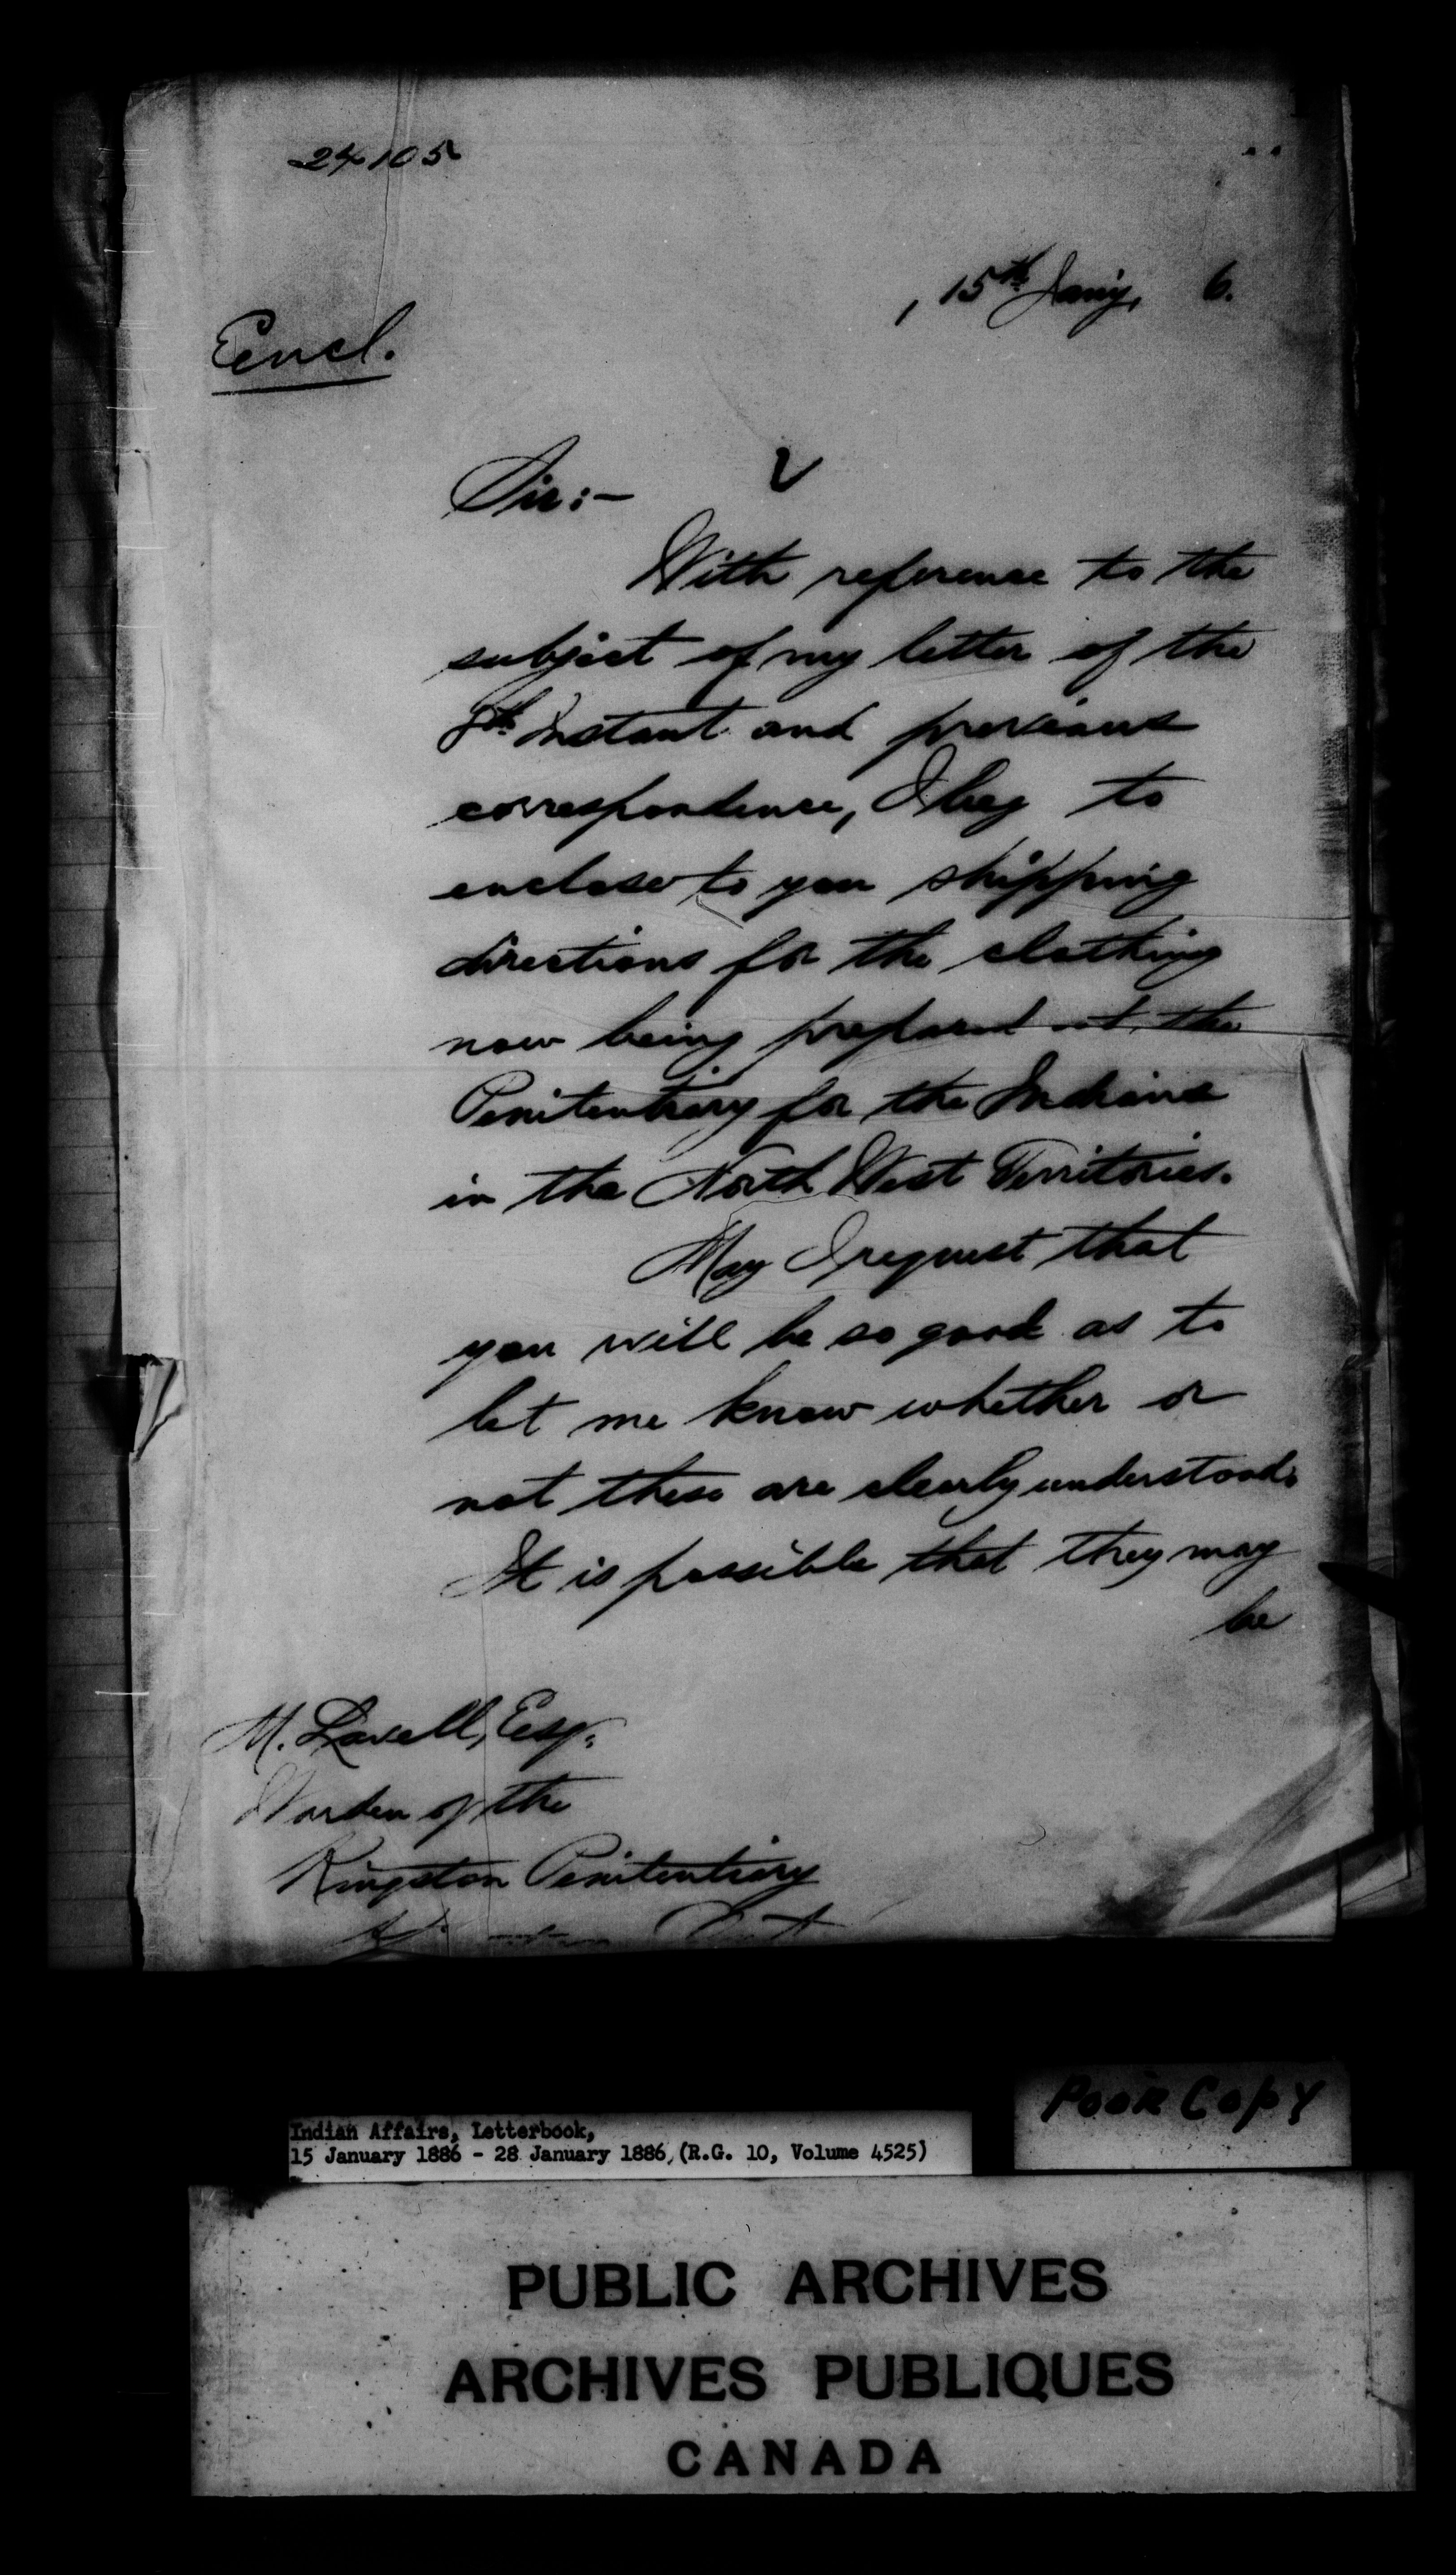 24105
, 15th Jany, 6.
Encl.
Sir:-
With reference to the
subject of my letter of the
8th Instant and previous
correspondence, I beg to
enclose to you shipping
directions for the clothing
now being prepared at the
Penitentiary for the Indians
in the North West Territories.
May I request that
you will be so good as to
let me know whether or
not these are clearly understood.
It is possible that they may
be
M. Lavell, Esq.
Warden of the
Kingston Penitentiary
POOR COPY
Indian Affairs, Letterbook,
15 January 1886 - 28 January 1886, (R.G. 10, Volume 4525)
PUBLIC ARCHIVES
ARCHIVES PUBLIQUES
CANADA